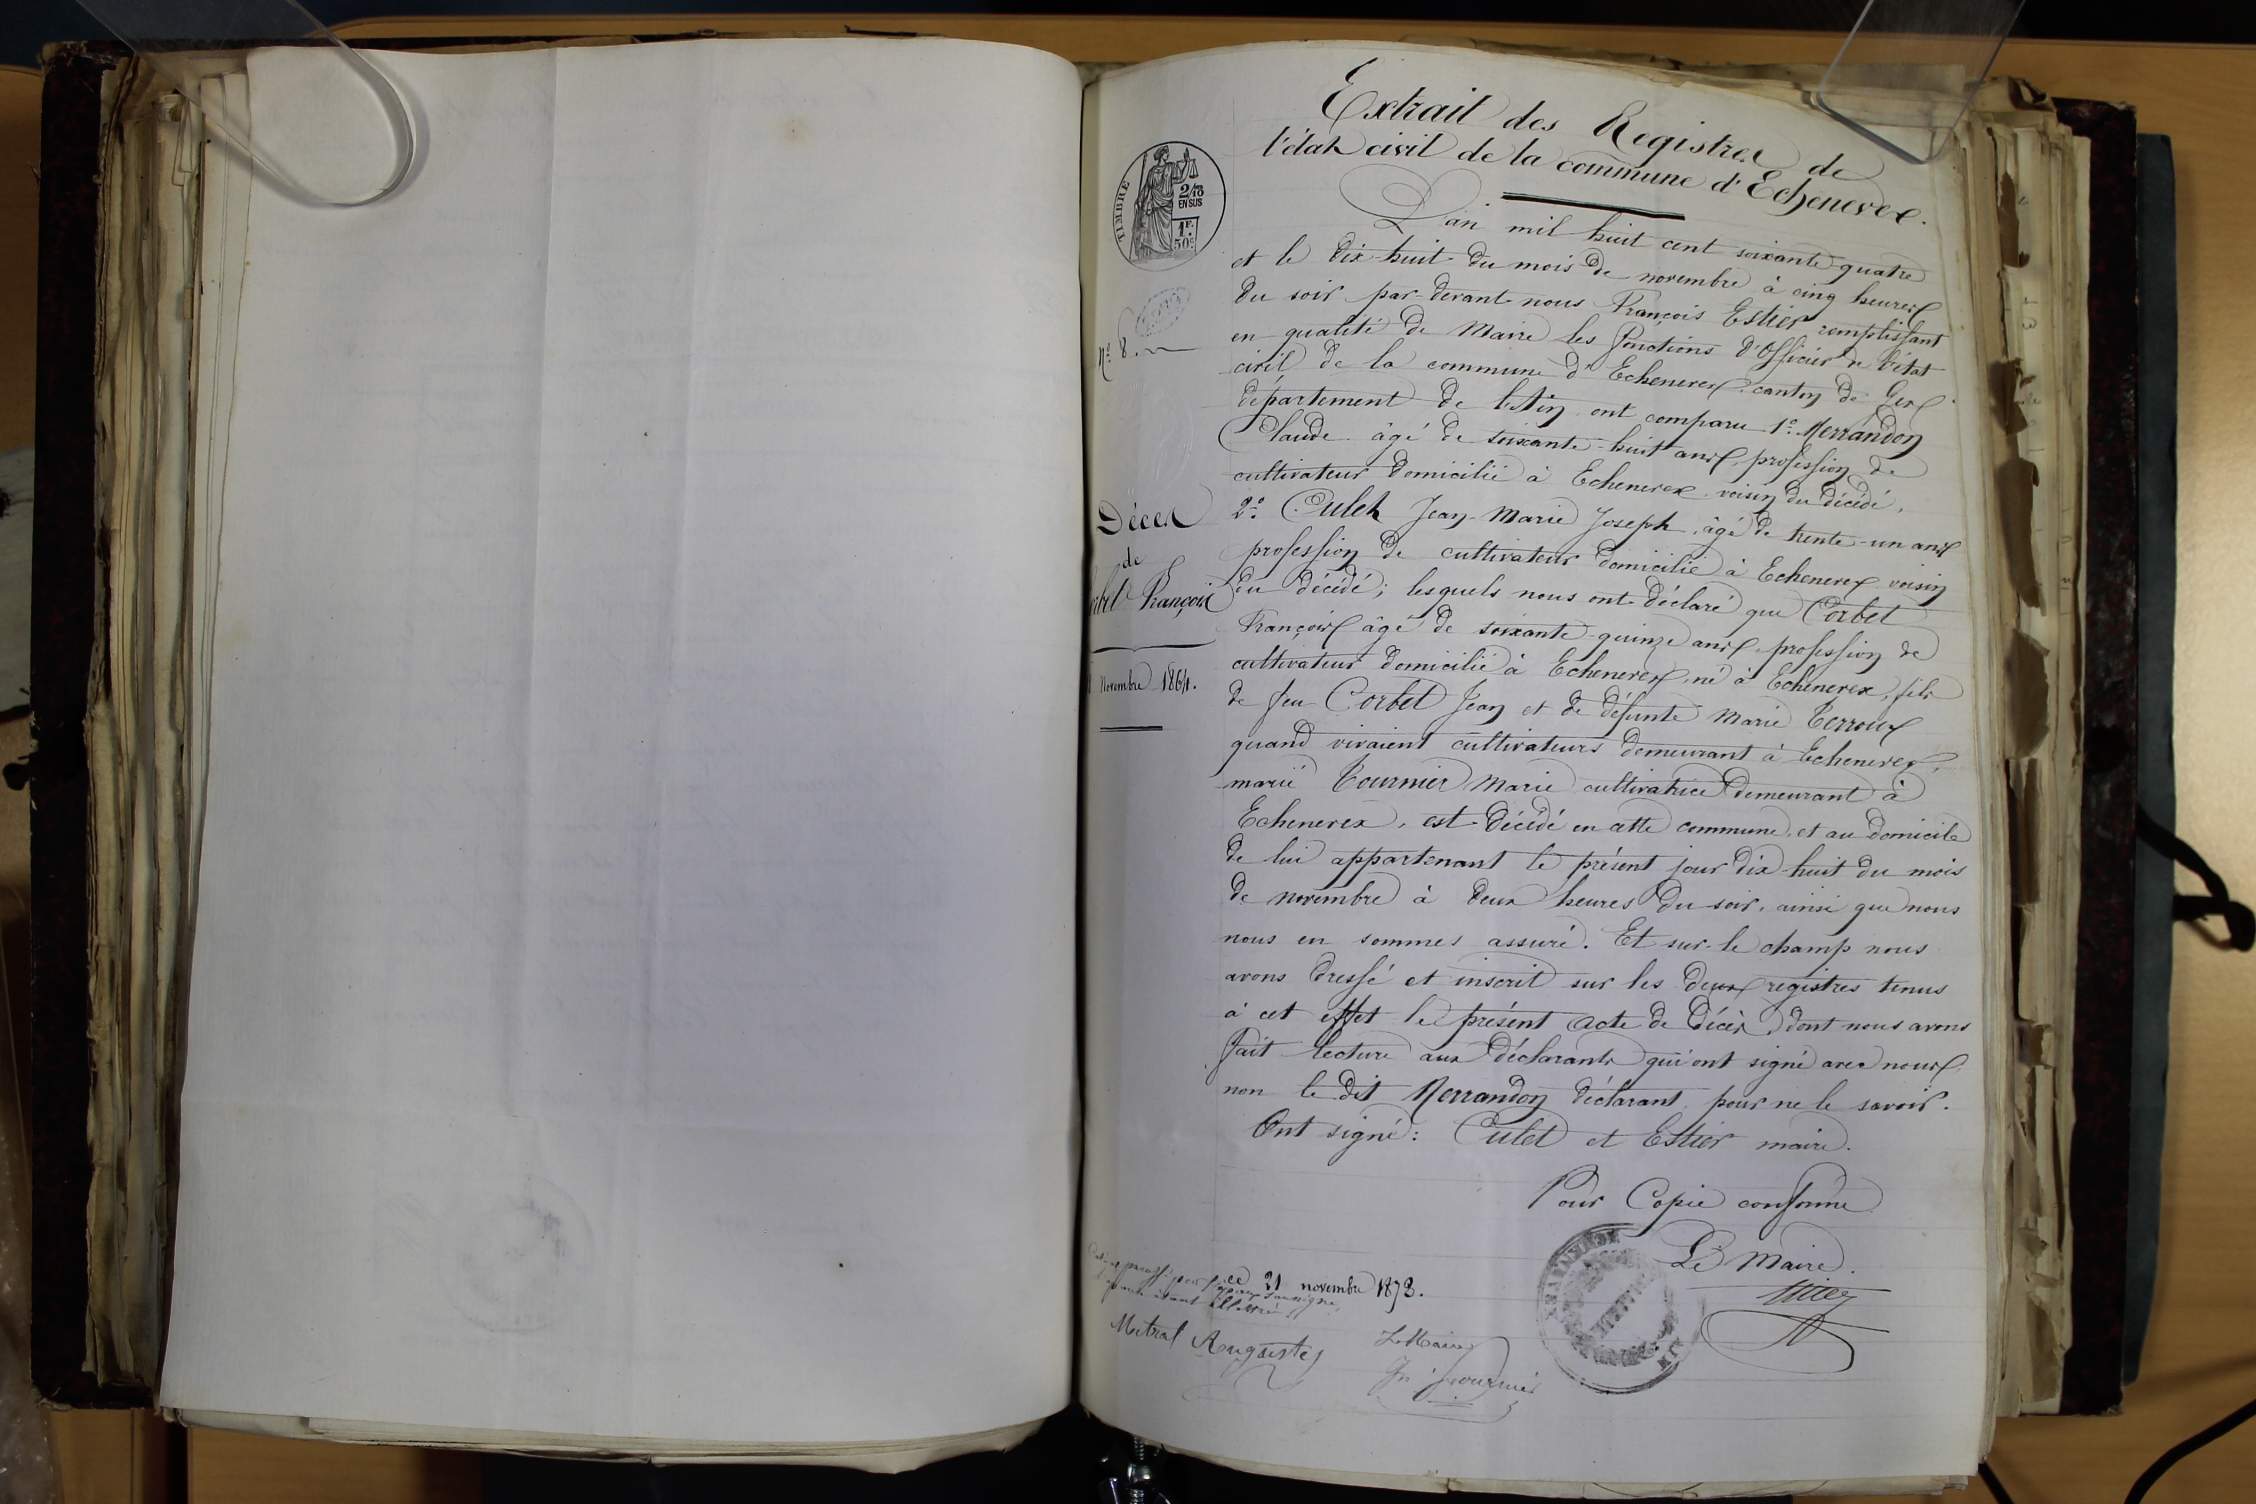 Extrait des Registres de
l'état civil de la commune d'Echenevex.
TIMBRE
2/10
EN SUS
1F.
50c.
L'an mil huit cent soixante quatre
et le dix-huit du mois de novembre à cinq heures
du soir par-devant-nous François Estier remplissant
en qualité de Maire les fonctions d'Officier de l'état
civil de la commune d'Echenevex canton de Gex
département de l'Ain ont comparu 1º Merrandon
Claude âgé de soixante-huit ans, profession de
cultivateur domicilié à Echenevex voisin du décédé,
2º Culet Jean-Marie Joseph, âgé de trente-un ans
profession de cultivateur domicilié à Echenevex voisin
du décédé; lesquels nous ont déclaré que Corbet
François âgé de soixante-quinze ans profession de
cultivateur domicilié à Echenevex, né à Echenevex, fils
de feu Corbet Jean et de défunte Marie Terroux
quand vivaient cultivateurs demeurant à Echenevex,
marié Tournier Marie cultivatrice demeurant à
Echenevex, est décédé en cette commune, et au domicile
de lui appartenant le présent jour dix-huit du mois
de novembre à deux heures du soir, ainsi que nous
nous en sommes assuré. Et sur-le champ nous
avons dressé et inscrit sur les deux registres tenus
à cet effet le présent acte de décès, dont nous avons
fait lecture aux déclarants qui ont signé avec nous
non le dit Merrandon déclarant pour ne le savoir.
Ont signé: Culet et Estier maire.
Pour Copie conforme
Le Maire.
Nº 8.
Décès
de
François
Novembre 1864.
ce 21 novembre 1873.
Metral Auguste
Le Maire
Tournier